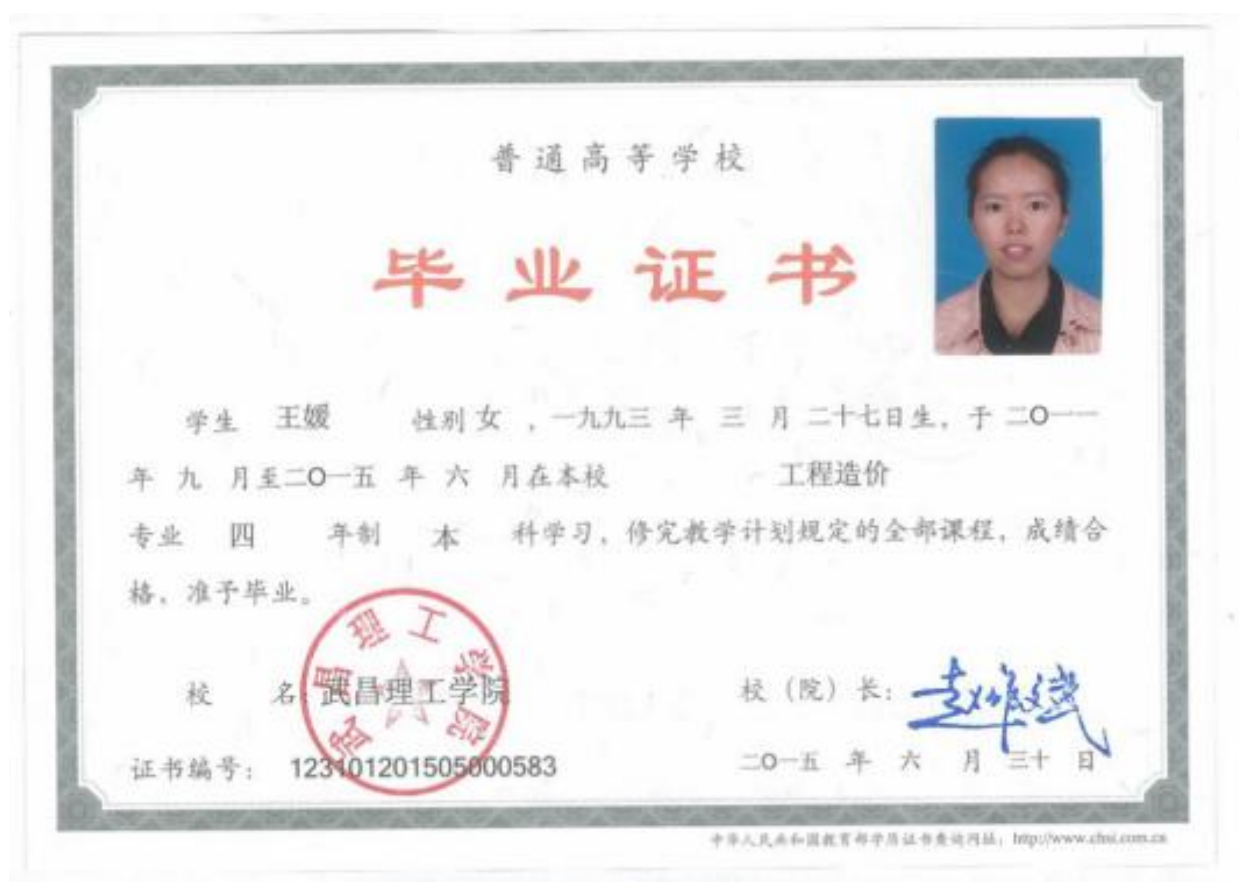 普通高等学校
毕业证书
学生 王媛 性别 女 ，一九九三 年 三 月 二十七日生，于 二O一一
年 九 月至二O一五 年 六 月在本校 工程造价
专业 四 年制 本 科学习，修完教学计划规定的全部课程，成绩合
格，准予毕业。
校 名：武昌理工学院
校（院）长：
武昌理工学院
证书编号： 123101201505000583
二O一五 年 六 月 三十 日
中华人民共和国教育部学历证书查询网址：http://www.chsi.com.cn